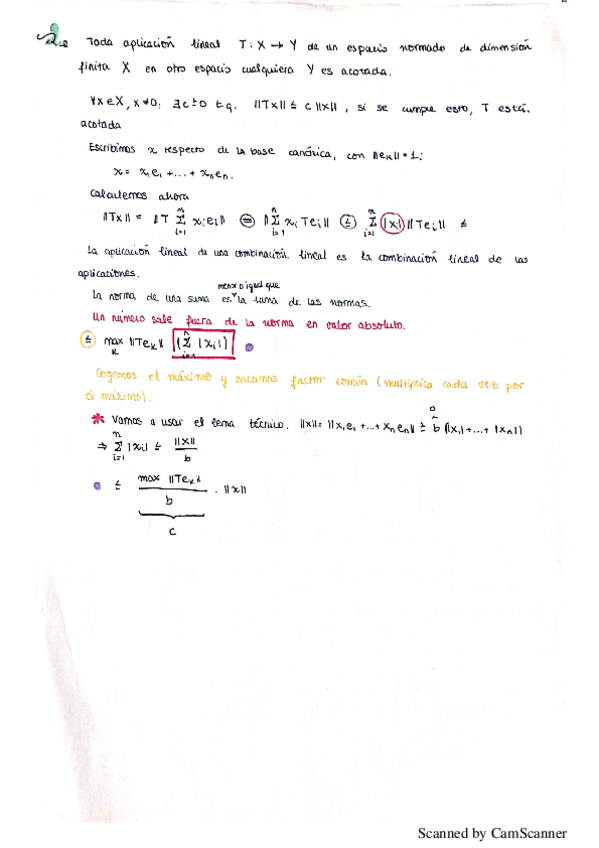 2.
Toda aplicación lineal T: X → Y de un espacio normado de dimensión
finita X en otro espacio cualquiera Y es acotada.
∀x∈X, x≠0, ∃c>0 t.q. ||Tx|| ≤ c||x||, si se cumple esto, T está
acotada
Escribimos x respecto de la base canónica, con ||eₖ|| = 1:
x = x₁e₁ + ... + xₙeₙ.
Calculemos ahora
||Tx|| = ||T Σⁿᵢ₌₁ xᵢeᵢ|| = ||Σⁿᵢ₌₁ xᵢ Teᵢ|| ≤ Σⁿᵢ₌₁ |xᵢ| ||Teᵢ|| ≤
La aplicación lineal de una combinación lineal es la combinación lineal de las
aplicaciones.
menor o igual que
La norma de una suma es la suma de las normas.
Un número sale fuera de la norma en valor absoluto.
≤ max ₖ ||Teₖ|| (Σⁿᵢ₌₁ |xᵢ|)
Cogemos el máximo y sacamos factor común (multiplica cada vez por
el máximo).
* Vamos a usar el lema técnico: ||x|| = ||x₁e₁ + ... + xₙeₙ|| ≥ b (|x₁| + ... + |xₙ|)
⇒ Σⁿᵢ₌₁ |xᵢ| ≤ ||x|| / b
≤ max ||Teₖ|| / b · ||x||
c
Scanned by CamScanner